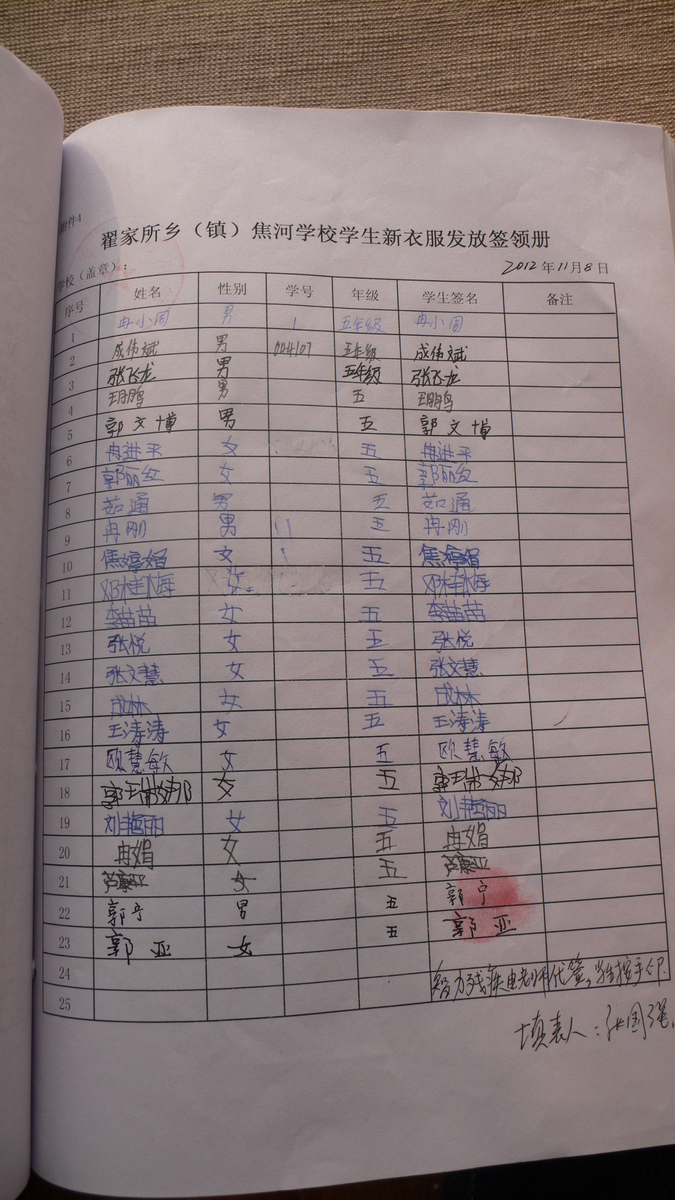 附件4
翟家所乡（镇）焦河学校学生新衣服发放签领册
学校（盖章）： 2012年11月8日
序号 姓名 性别 学号 年级 学生签名 备注
1 冉小周 男 五年级 冉小周
2 成伟斌 男 004107 五年级 成伟斌
3 张飞龙 男 五年级 张飞龙
4 男 五
5 郭文博 男 五 郭文博
6 冉进平 女 五 冉进平
7 郭丽红 女 五 郭丽红
8 茹通 男 五 茹通
9 冉刚 男 五 冉刚
10 焦婷娟 女 五 焦婷娟
11 邓桂梅 女 五 邓桂梅
12 李苗苗 女 五 李苗苗
13 张悦 女 五 张悦
14 张文慧 女 五 张文慧
15 成林 女 五 成林
16 王涛涛 女 五 王涛涛
17 欧慧敏 女 五 欧慧敏
18 女 五
19 刘艳丽 女 五 刘艳丽
20 冉娟 女 五 冉娟
21 女 五
22 郭宁 男 五 郭宁
23 郭亚 女 五 郭亚
24 智力残疾由老师代签，学生按手印.
25
填表人：张国强